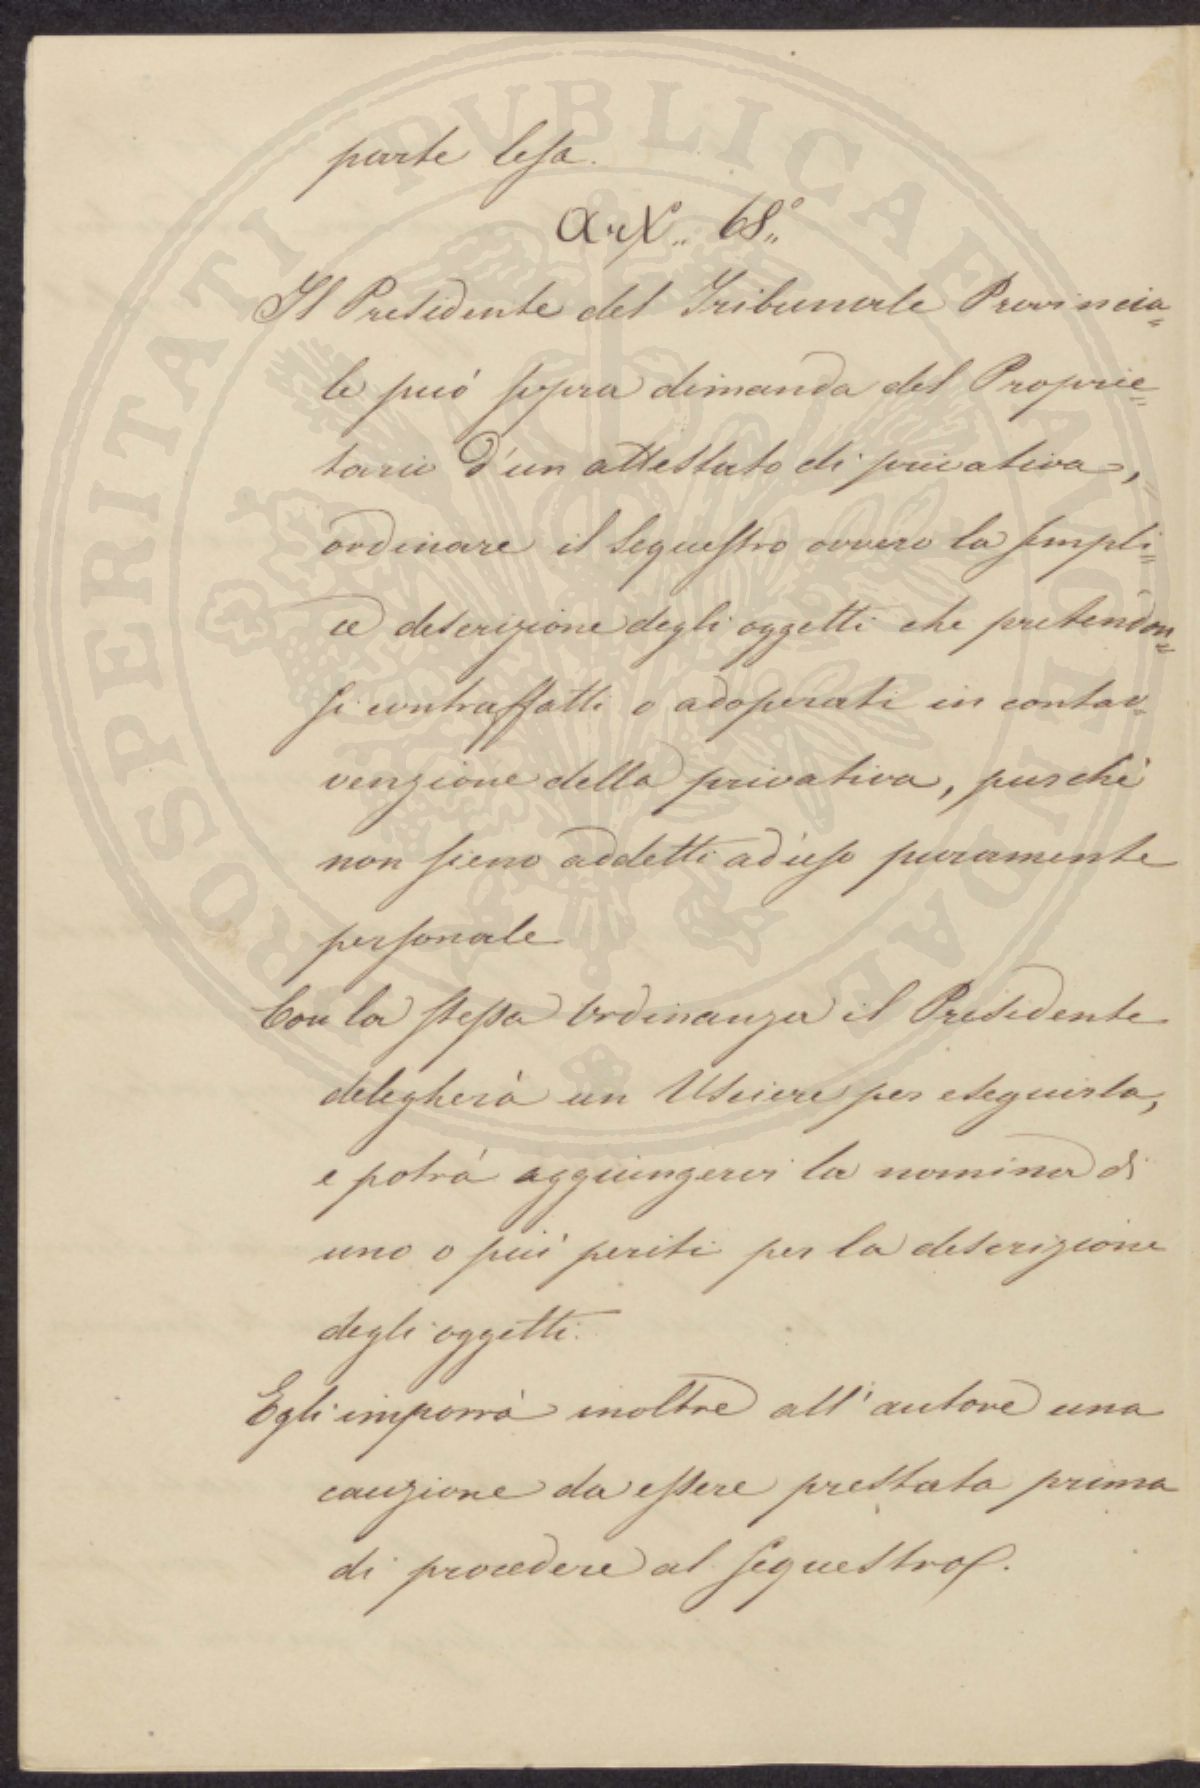 parte lesa.
Art. 68°
Il Presidente del Tribunale Provincia=
le può sopra dimanda del Proprie=
tario d'un attestato di privativa,
ordinare il sequestro ovvero la sempli=
ce descrizione degli oggetti che pretendon=
si contraffatti o adoperati in contav=
venzione della privativa, purchè
non sieno addetti ad uso puramente
personale
Con la stessa Ordinanza il Presidente
delegherà un Usciere per eseguirla,
e potrà aggiungervi la nomina di
uno o più periti per la descrizione
degli oggetti.
Egli imporrà inoltre all'autore una
cauzione da essere prestata prima
di procedere al sequestro.
PROSPERITATI PVBLICAE AVGENDAE